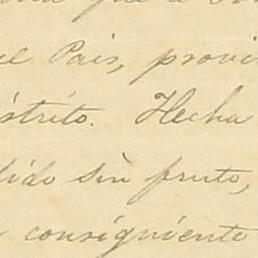 que a
el Pais, provi
istrito. Hecha
dido sin fruto,
consiguiente